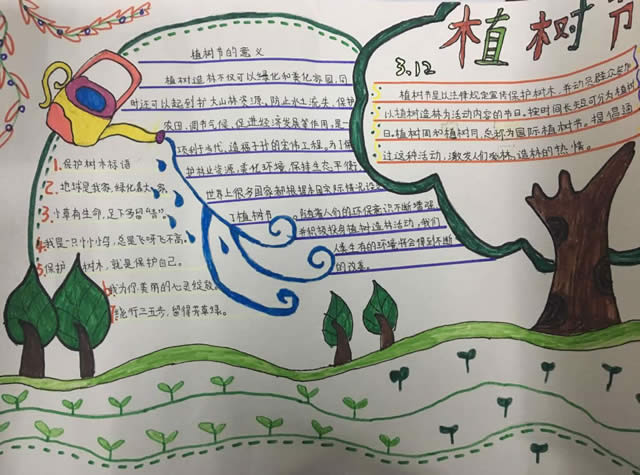 植树节
3.12
植树节是以法律规定宣传保护树木，并动员群众参加
以植树造林为活动内容的节日。按时间长短可分为植树
日。植树周和植树月，总称为国际植树节。提倡通
过这种活动，激发人们爱林、造林的热情。
植树节的意义
植树造林不仅可以绿化和美化家园，同
时还可以起到扩大山林资源、防止水土流失、保护
农田、调节气候、促进经济发展等作用，是一
项利于当代、造福子孙的宏伟工程。为了保
护林业资源，美化环境，保持生态平衡，
世界上很多国家都根据本国实际情况设
了植树节 随着人们的环保意识不断增强
并积极投身植树造林活动，我们
人类生存的环境将会得到不断
的改善。
1.保护树木标语
2.地球是我家，绿化靠大家
3.小草有生命，足下多留“青”。
4.我是一只小小鸟，总是飞呀飞不高。
5.保护 树木，就是保护自己。
6.我为你美丽的 心灵绽放。
7.绕行三五步，留得芳草绿。